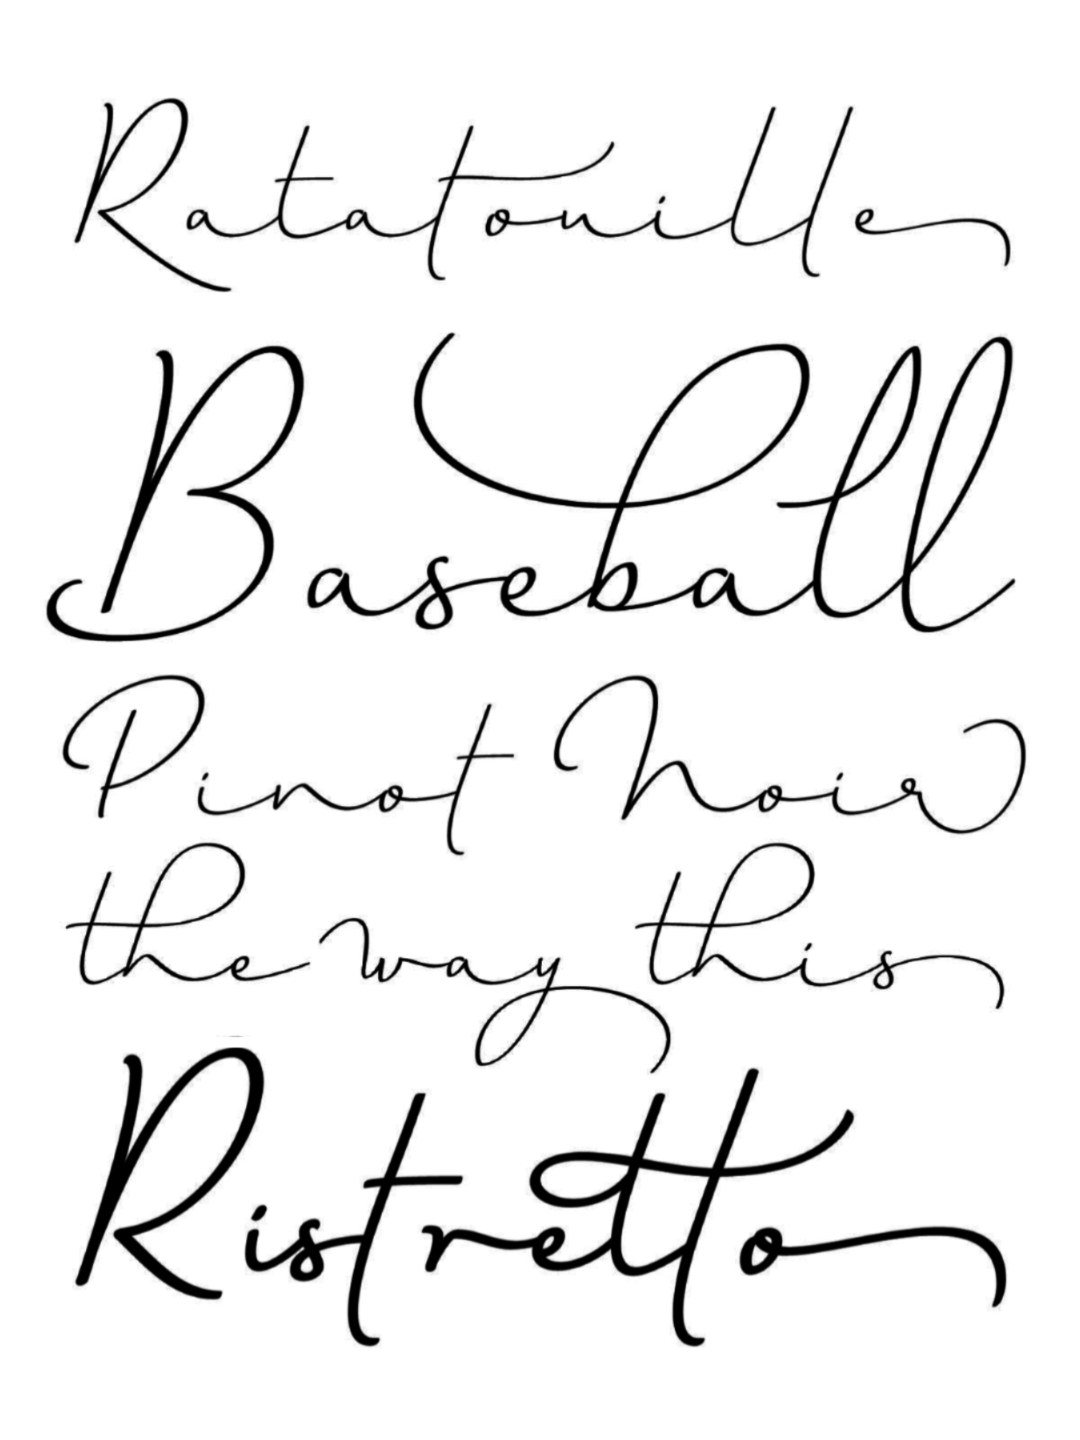 Ratatouille
Baseball
Pinot Noir
the way this
Ristretto